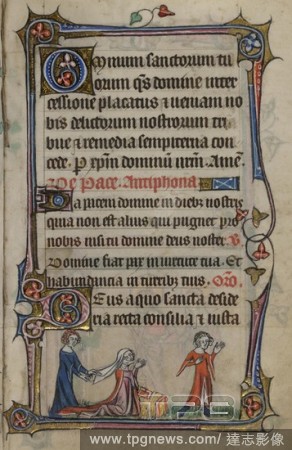 Omnium sanctorum tu
orum qs domine inter
cessione placatus et veniam no
bis delictorum nostrorum tri
bue et remedia sempiterna con
cede. P xpm dominum nrm. Amen.
De Pace. Antiphona
Da pacem domine in diebz nostris
quia non est alius qui pugnet pro
nobis nisi tu domine deus noster. V
Domine fiat pax in virtute tua. Et
habundancia in turribz tuis. Oro.
Deus a quo sancta deside
ria recta consilia et iusta
www.tpgnews.com / 達志影像